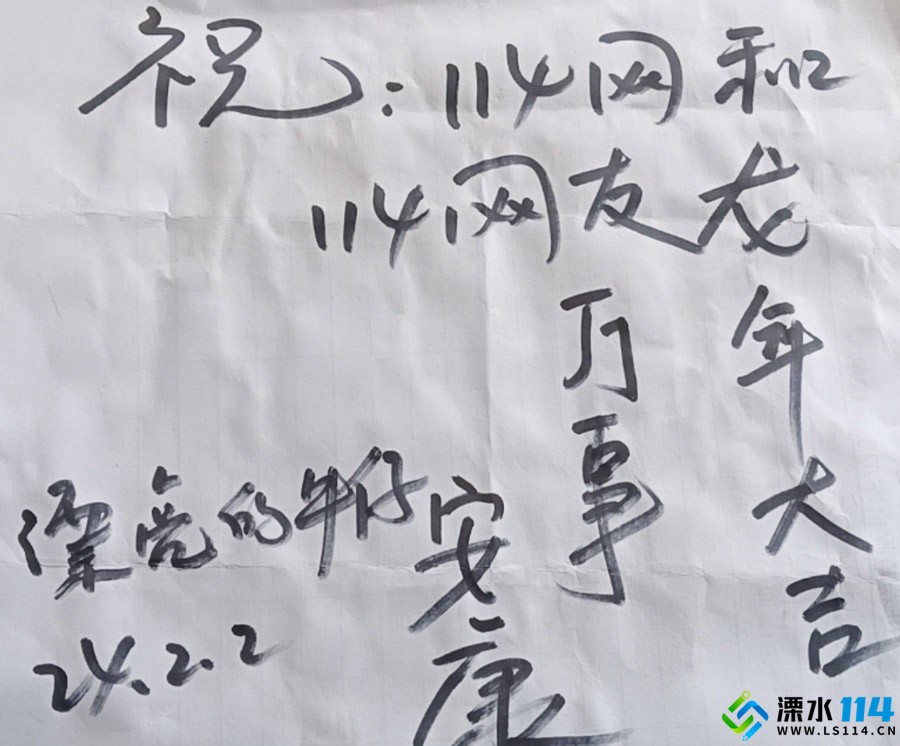 祝:114网和
114网友龙
年大吉
万事
安康
漂亮的牛仔
24.2.2
溧水114
WWW.LS114.CN